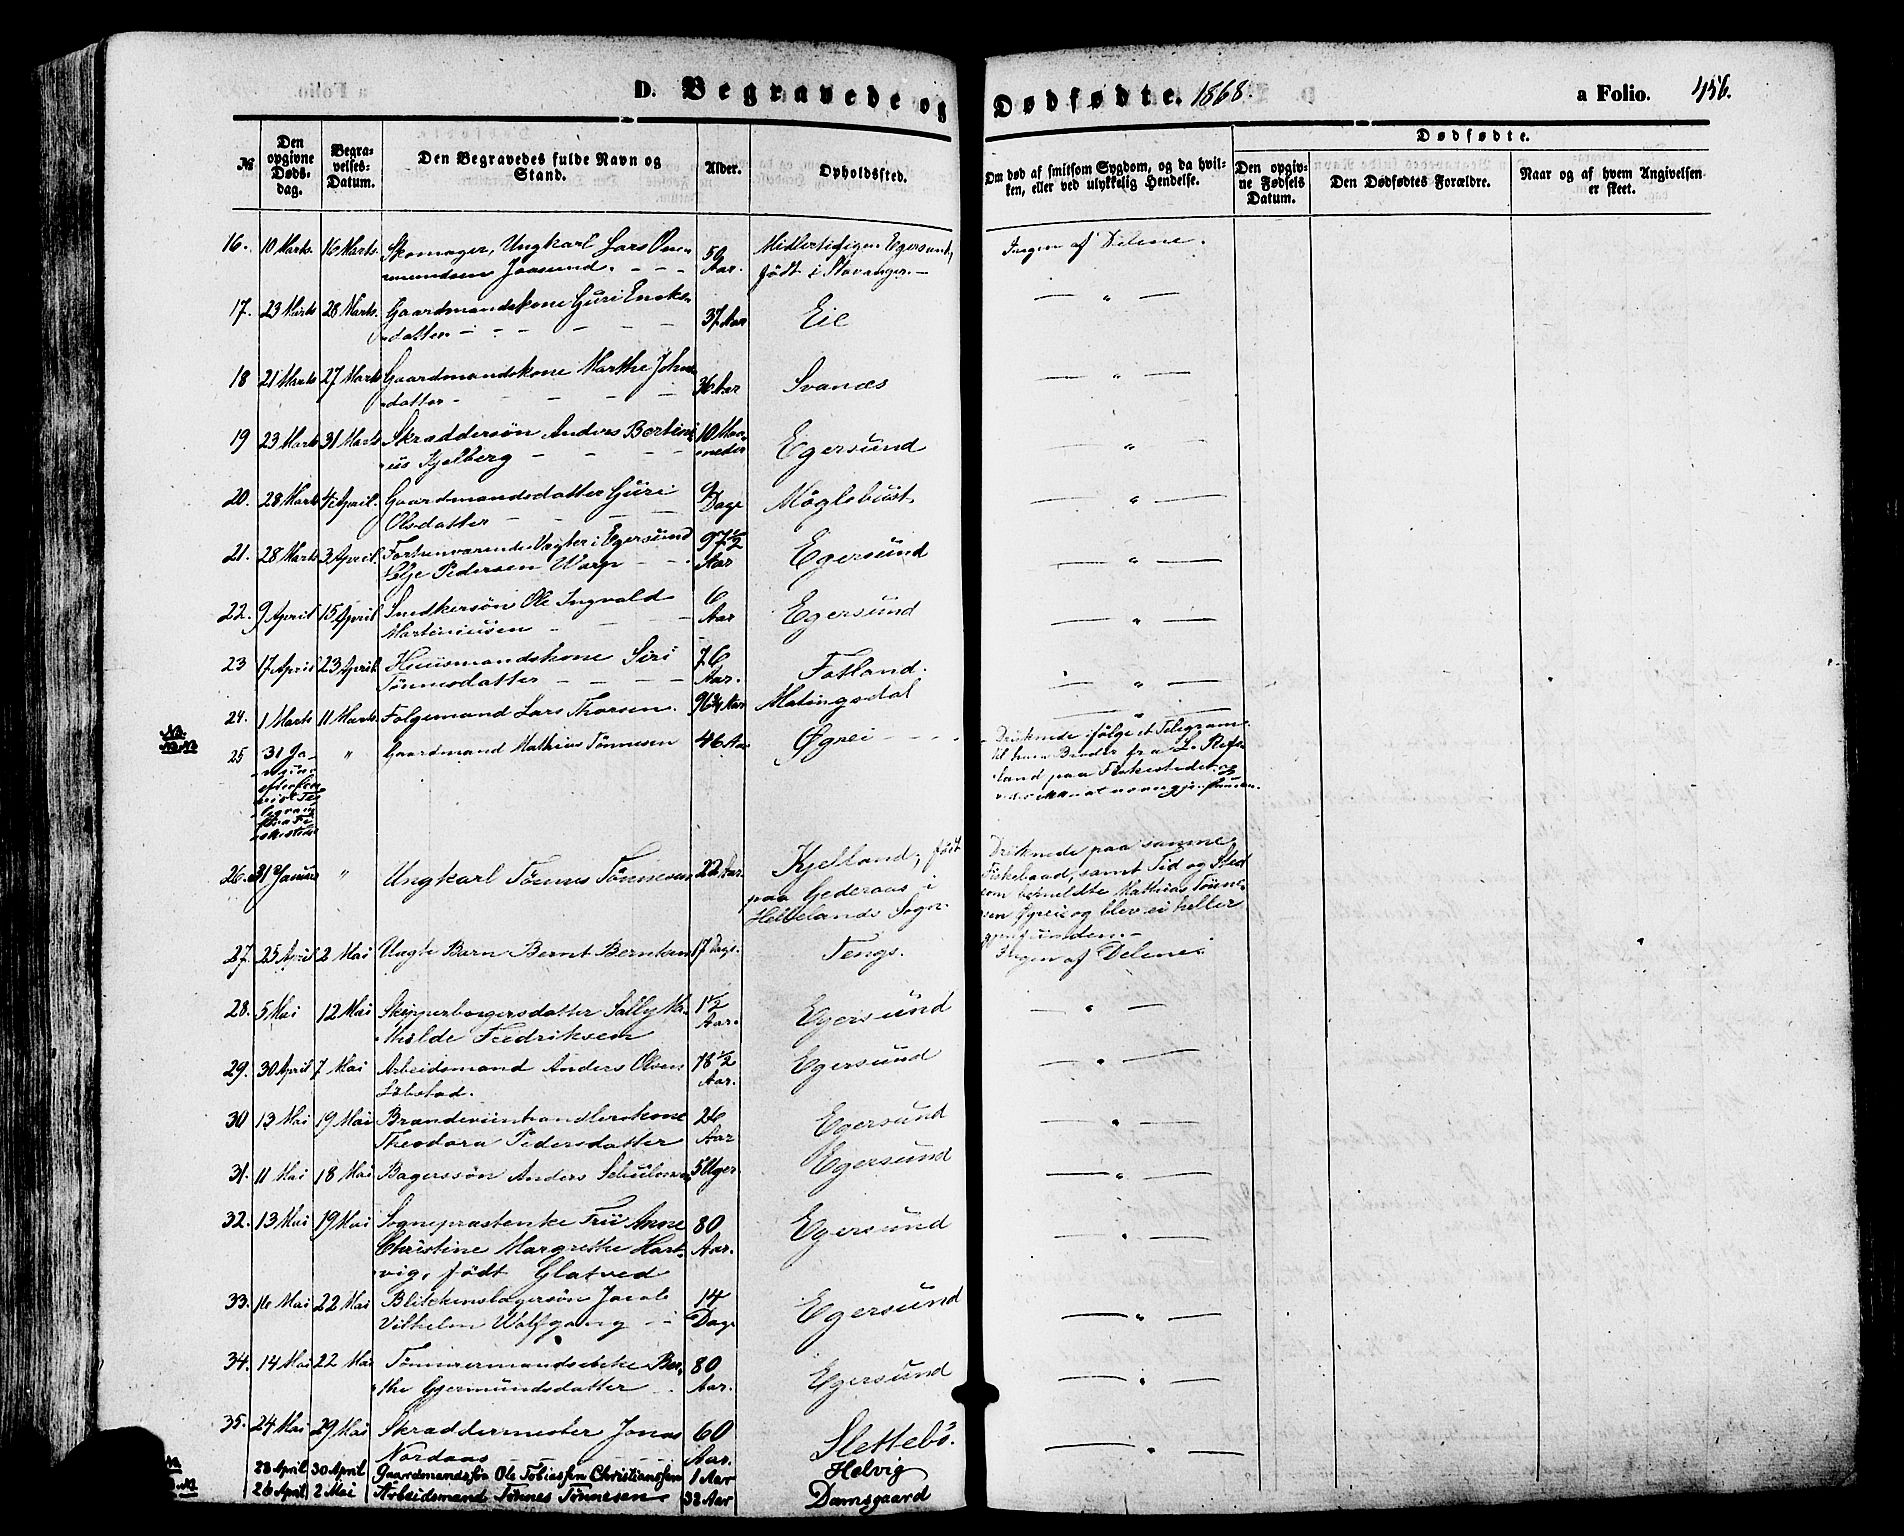 D. Begravede og Dødfødte. 1868. a Folio. 456.
№
Den opgivne Dødsdag.
Begravelses-Datum.
Den Begravedes fulde Navn og Stand.
Alder.
Opholdssted.
Om død af smitsom Sygdom, og da hvilken, eller ved ulykkelig Hendelse.
Dødfødte.
Den opgivne Fødsels Datum.
Den Dødfødtes Forældre.
Naar og af hvem Angivelsen er skeet.
16. 10 Marts. 16 Marts. Skomager, Ungkarl Lars 59 Midlertidigen Egersund, Ingen af Delene.
mundsen Jaasund. Aar. født i Stavanger.
17. 23 Marts 28 Marts. Gaardmandskone Guri 37 Aar Eie — " —
datter
18 21 Marts 27 Marts Gaardmandskone Marthe Johns 36 Aar Svanæs — " —
datter
19 23 Marts 31 Marts Skræddersøn Anders Bertini 10 Maa Egersund "
us Kjelberg neder
20. 28 Marts 4 April. Gaardmandsdatter Guri 9 Møglebust — " —
Olsdatter Dage
21. 28 Marts 3 April. Forhenværende Vægter i Egersund 97½ Egersund — " —
Pedersen Warp Aar
22. 9 April 15 April Snedkersøn Ole Ingvald 6 Egersund — " —
Martiniusen Aar
23 17 April 23 April. Huusmandskone Siri 76 Fotland. — " —
Tønnesdatter Aar.
24. 1 Marts 11 Marts. Folgemand Lars Thorsen. 96¾ Aar Matingsdal — " —
NB.
NB. NB
25 31 Ja- " Gaardmand Mathias Tønnesen 46 Aar Øgrei Druknede ifølge et Telegram
til hans Broder fra L. Refs
land paa Fiskestedet og
26. 31 Januar " Ungkarl Tønnes Tønnesen 22 Aar. Kjelland, født Druknede paa samme
paa Gederaas i Fiskebaad, samt Tid og Sted
Hellelands Sogn. som bemeldte Mathias Tønne-
sen Øgrei og blev ei heller
gjenfunden.
27. 25 April 2 Mai Uægte Barn Bernt Berntsen 17 Dage. Tengs. Ingen af Delene.
28. 5 Mai 12 Mai Skipperborgersdatter Sally Ma- 1½ Egersund — " —
thilde Fredriksen Aar.
29. 30 April 7 Mai Arbeidsmand Anders Olsen 78½ Egersund — " —
Løbstad. Aar.
30 13 Mai 19 Mai Brændeviinshandlerskone 26 Egersund — " —
Theodora Pedersdatter Aar
31. 11 Mai 18 Mai Bagerssøn Anders 5 Uger. Egersund — " —
32. 13 Mai 19 Mai Sognepræstenke Fru Anne 80 Egersund — " —
Christine Margrethe Hart- Aar.
vig, født Glatved
33. 16 Mai 22 Mai Blikkenslagersøn Jacob 14 Egersund — " —
Vilhelm Wolfgang Dage
34. 14 Mai 22 Mai Tømmermandsenke Ber- 80 Egersund — " —
the Gjermundsdatter Aar.
35. 24 Mai 29 Mai Skræddermester Jonas 60 Slettebø. — " —
Nordaas Aar.
28 April 30 April Gaardmandsøn Ole Tobiassen Christiansen 1 Aar Helvig
26 April 2 Mai Arbeidsmand Tønnes Tønnesen 32 Aar Damsgaard